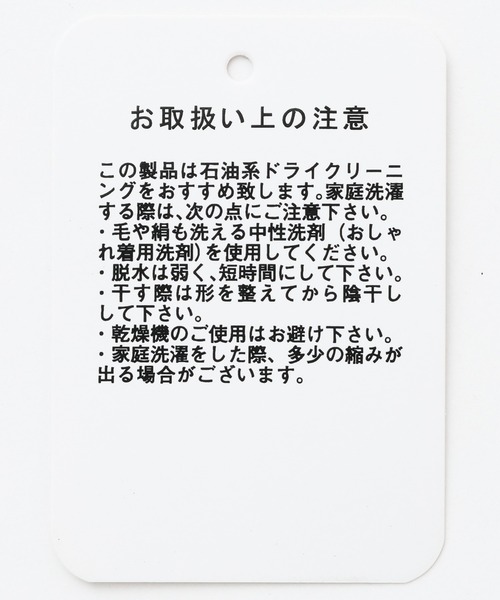 お取扱い上の注意
この製品は石油系ドライクリーニ
ングをおすすめ致します。家庭洗濯
する際は、次の点にご注意下さい。
・毛や絹も洗える中性洗剤（おしゃ
れ着用洗剤）を使用してください。
・脱水は弱く、短時間にして下さい。
・干す際は形を整えてから陰干し
して下さい。
・乾燥機のご使用はお避け下さい。
・家庭洗濯をした際、多少の縮みが
出る場合がございます。